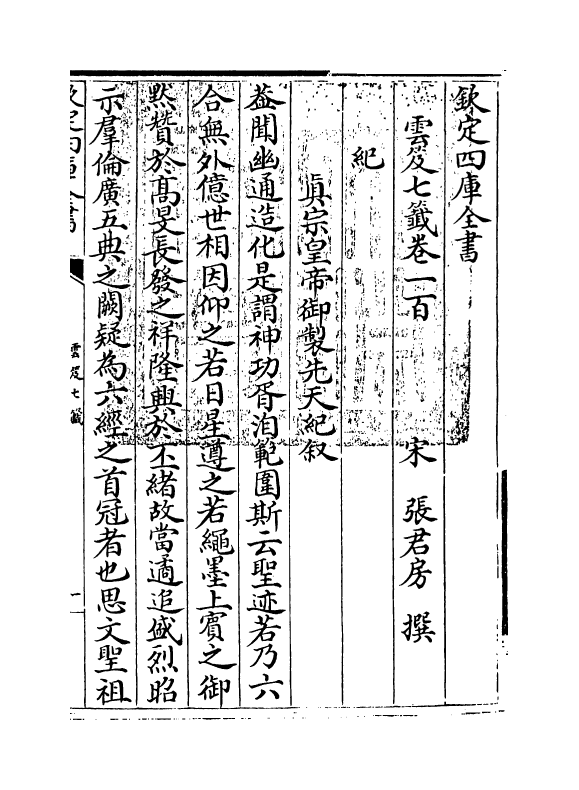 欽定四庫全書
雲笈七籤卷一百 宋 張君房 撰
紀
真宗皇帝御製先天紀叙
葢聞幽通造化是謂神功胥洎範圍斯云聖迹若乃六
合無外億世相因仰之若日星遵之若繩墨上賓之御
黙贊於髙旻長發之祥隆興於丕緒故當遹追盛烈昭
示羣倫廣五典之闕疑為六經之首冠者也思文聖祖
欽定四庫全書
雲笈七籤
一